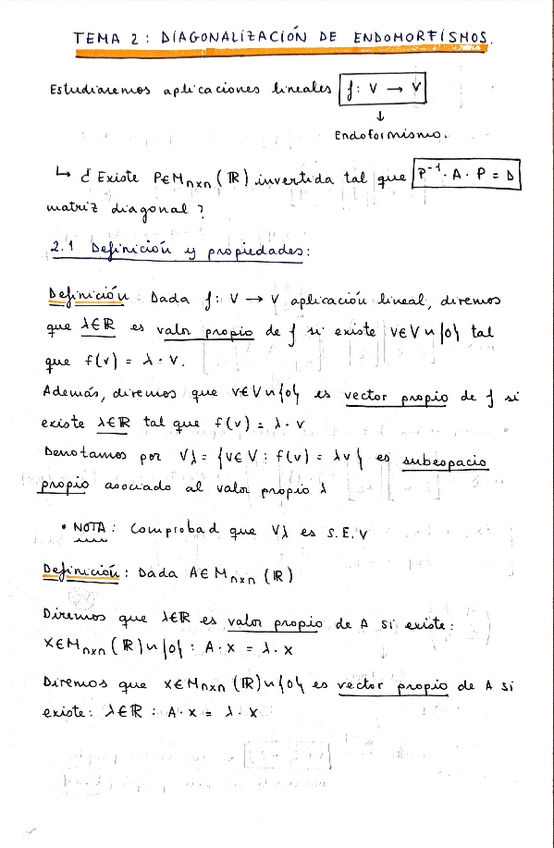 TEMA 2: DIAGONALIZACIÓN DE ENDOMORFISMOS.
Estudiaremos aplicaciones lineales f: V → V
↓
Endoformismo.
↳ ¿Existe P∈Mnxn(ℝ) invertida tal que P⁻¹·A·P = D
matriz diagonal?
2.1 Definición y propiedades:
Definición: Dada f: V → V aplicación lineal, diremos
que λ∈ℝ es valor propio de f si existe v∈V\{0} tal
que f(v) = λ·v.
Además, diremos que v∈V\{0} es vector propio de f si
existe λ∈ℝ tal que f(v) = λ·v
Denotamos por Vλ = {v∈V: f(v) = λv} es subespacio
propio asociado al valor propio λ
• NOTA: Comprobad que Vλ es S.E.V
Definición: Dada A∈Mnxn(ℝ)
Diremos que λ∈ℝ es valor propio de A si existe:
x∈Mnxn(ℝ)\{0}: A·x = λ·x
Diremos que x∈Mnxn(ℝ)\{0} es vector propio de A si
existe: λ∈ℝ: A·x = λ·x